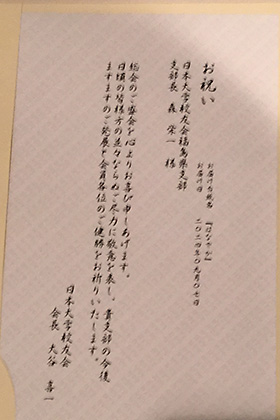 お祝い
お届け台紙名 『はなやか』
お届け日 二〇二四年〇九月〇七日
日本大学校友会福島県支部
支部長 森 栄一 様
総会のご盛会を心よりお喜び申しあげます。
日頃の皆様方の並々ならぬご尽力に敬意を表し、貴支部の今後
ますますのご発展と会員各位のご健勝をお祈りいたします。
日本大学校友会
会長 大谷 喜一